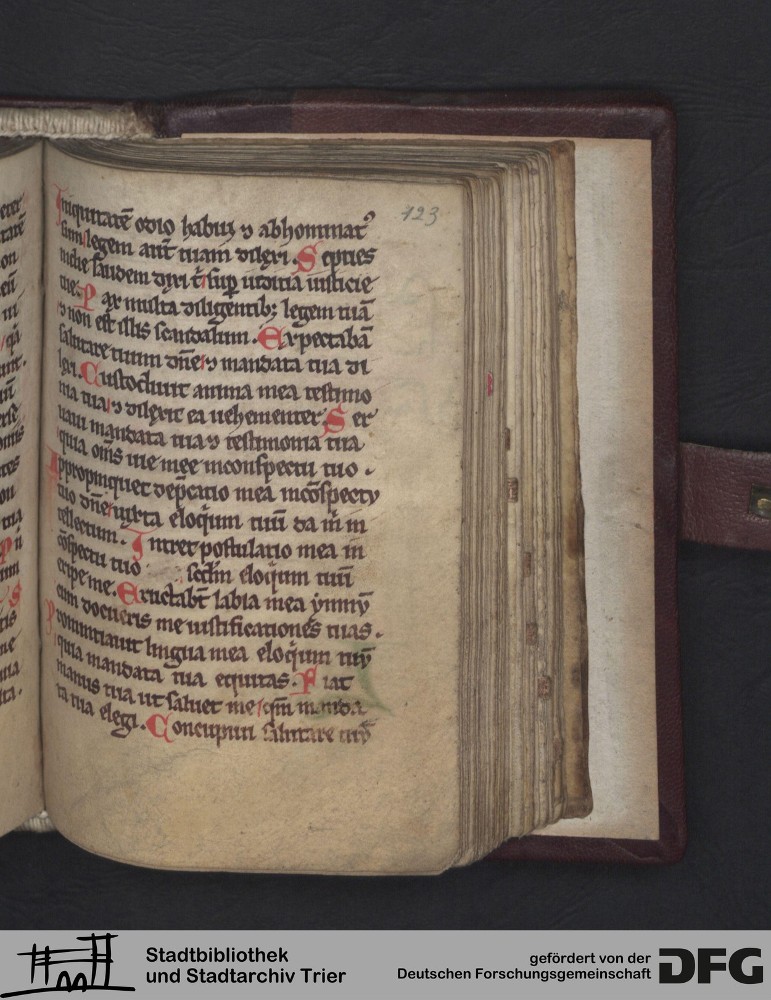 123
Iniquitatē odio habui ⁊ abhominatꝰ
sum legem aūt tuam dilexi. Septies
in die laudem dixi t̄ sup̄ iudicia iusticie
tue. Pax multa diligentib; legem tuā
⁊ non est illis scandalum. Expectabā
salutare tuum dn̄e ⁊ mandata tua di
lexi. Custodiuit anima mea testimo
nia tua ⁊ dilexit ea uehementer Ser
uaui mandata tua ⁊ testimonia tua
quia om̄s uie mee inconspectu tuo.
Appropinquet dep̄catio mea incōspectu
tuo dn̄e iuxta eloq̄um tuū da m̄ in
tellectum. Intret postulatio mea in
cōspectu tuo scd̄m eloq̄um tuū
eripe me. Eructab̄t labia mea ymnū
cum docueris me iustificationes tuas.
Pronuntiauit lingua mea eloq̄um tuū
quia mandata tua equitas. Fiat
manus tua ut saluet me qm̄ manda
ta tua elegi. Concupiui salutare tuū
Stadtbibliothek
und Stadtarchiv Trier
gefördert von der
Deutschen Forschungsgemeinschaft
DFG